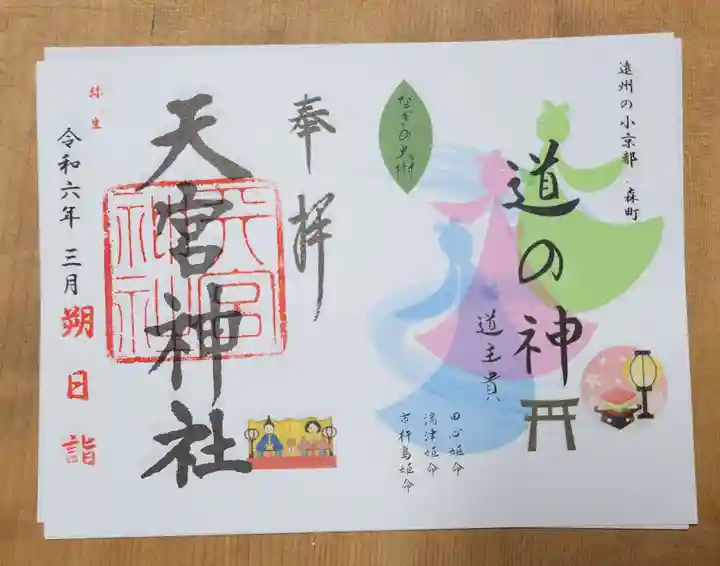 遠州の小京都 森町
道の神
道主貴
田心姫命
湍津姫命
市杵島姫命
なぎの大樹
奉拝
天宮神社
天宮神社
弥生
令和六年 三月
朔日詣